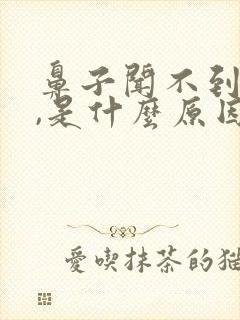 鼻子聞不到
,是什麼原因
愛喫抹茶的貓